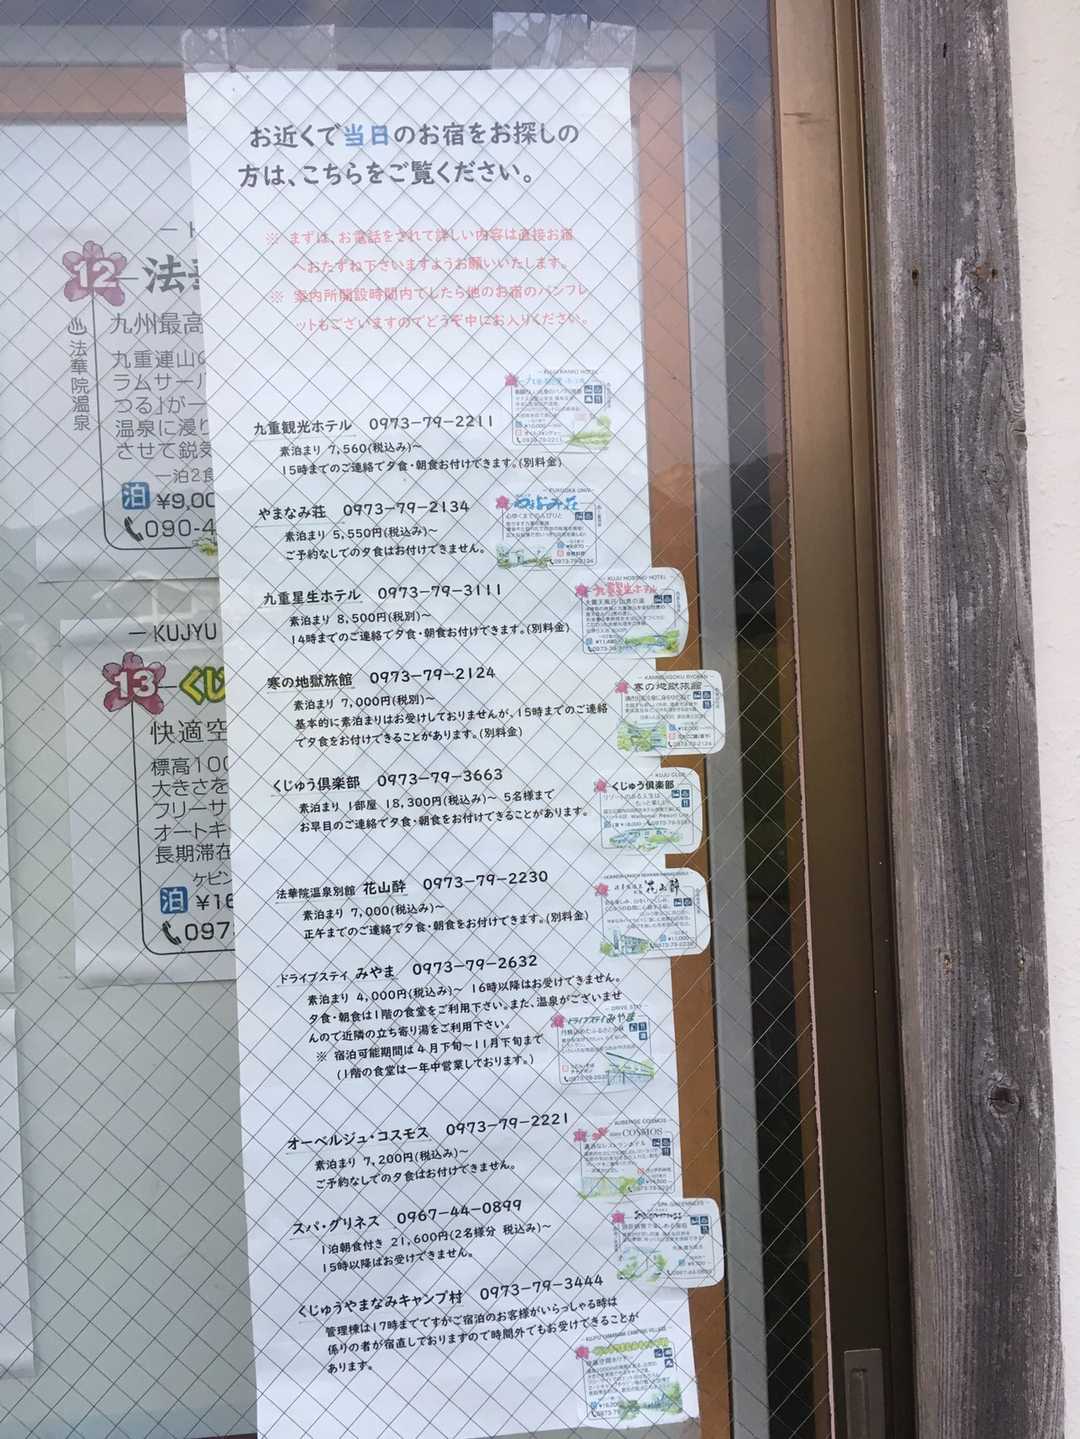 お近くで当日のお宿をお探しの
方は、こちらをご覧ください。
※ まずは、お電話をされて詳しい内容は直接お宿
へおたずね下さいますようお願いいたします。
※ 案内所開設時間内でしたら他のお宿のパンフレ
ットもございますのでどうぞ中にお入りください。
九重観光ホテル 0973-79-2211
素泊まり 7,560(税込み)~
15時までのご連絡で夕食・朝食お付けできます。(別料金)
やまなみ荘 0973-79-2134
素泊まり 5,550円(税込み)~
ご予約なしでの夕食はお付けできません。
九重星生ホテル 0973-79-3111
素泊まり 8,500円(税別)~
14時までのご連絡で夕食・朝食お付けできます。(別料金)
寒の地獄旅館 0973-79-2124
素泊まり 7,000円(税別)~
基本的に素泊まりはお受けしておりませんが、15時までのご連絡
で夕食をお付けできることがあります。(別料金)
くじゅう倶楽部 0973-79-3663
素泊まり 1部屋 18,300円(税込み)~ 5名様まで
お早目のご連絡で夕食・朝食をお付けできることがあります。
法華院温泉別館 花山酔 0973-79-2230
素泊まり 7,000(税込み)~
正午までのご連絡で夕食・朝食をお付けできます。(別料金)
ドライブステイ みやま 0973-79-2632
素泊まり 4,000円(税込み)~ 16時以降はお受けできません。
夕食・朝食は1階の食堂をご利用下さい。また、温泉がございませ
んので近隣の立ち寄り湯をご利用下さい。
※ 宿泊可能期間は4月下旬~11月下旬まで
(1階の食堂は一年中営業しております。)
オーベルジュ・コスモス 0973-79-2221
素泊まり 7,200円(税込み)~
ご予約なしでの夕食はお付けできません。
スパ・グリネス 0967-44-0899
1泊朝食付き 21,600円(2名様分 税込み)~
15時以降はお受けできません。
くじゅうやまなみキャンプ村 0973-79-3444
管理棟は17時までですがご宿泊のお客様がいらっしゃる時は
係りの者が宿直しておりますので時間外でもお受けできることが
あります。
12 法華
九州最高
法華院温泉
九重連山の
ラムサール
つる」が一
温泉に浸り
させて鋭気
一泊2食
泊 ¥9,00
090-4
KUJYU
13 くじ
快適空
標高100
大きさを
フリーサ
オートキ
長期滞在
ケビン
泊 ¥16
097
やまなみ荘
九重星生ホテル
寒の地獄旅館
くじゅう倶楽部
花山酔
ドライブステイみやま
COSMOS